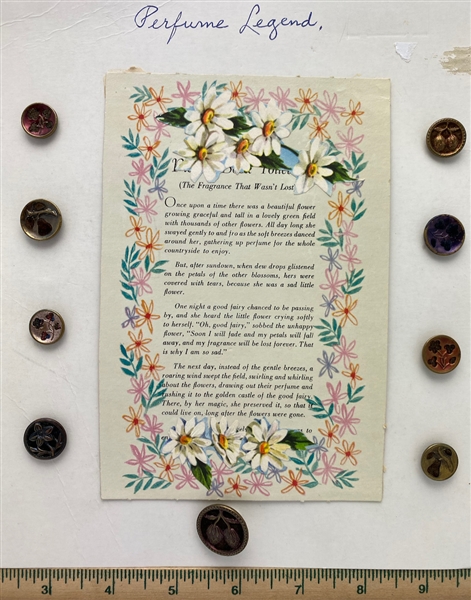 Perfume Legend.
(The Fragrance That Wasn't Lost
Once upon a time there was a beautiful flower
growing graceful and tall in a lovely green field
with thousands of other flowers. All day long she
swayed gently to and fro as the soft breezes danced
around her, gathering up perfume for the whole
countryside to enjoy.
But, after sundown, when dew drops glistened
on the petals of the other blossoms, hers were
covered with tears, because she was a sad little
flower.
One night a good fairy chanced to be passing
by, and she heard the little flower crying softly
to herself. "Oh, good fairy," sobbed the unhappy
flower, "Soon I will fade and my petals will fall
away, and my fragrance will be lost forever. That
is why I am so sad."
The next day, instead of the gentle breezes, a
roaring wind swept the field, swirling and whirling
about the flowers, drawing out their perfume and
rushing it to the golden castle of the good fairy.
There, by her magic, she preserved it, so that it
could live on, long after the flowers were gone.
to
3 4 5 6 7 8 9